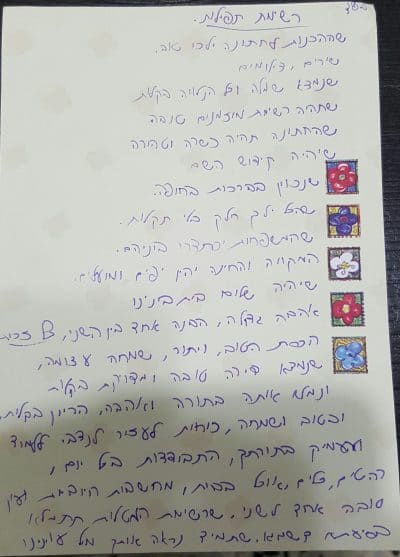 בס"ד
רשימת תפילות.
שההכנות לחתונה ילכו טוב.
שירים, צילומים
שנמצא שמלה וכל הנלווה בקלות
שתהיה רשימת מוזמנים טובה
שהחתונה תהיה כשרה וטהורה
שיהיה קידוש השם
שנכוון בברכות בחופה.
שהכל ילך חלק בלי תקלות.
שהמשפחות יסתדרו ביניהם.
המקווה והחינה יהיו יפים ומועילים.
שיהיה שלום בית בינינו
אהבה גדולה, הבנה אחד בין השני,
הכרת הטוב, ויתור, שמחה עצומה,
שנמצא דירה טובה ומדויקת בקלות
ונמלא אותה בתורה ואהבה, הריון בקלות,
ובטוב ושמחה, כוחות לעזור לנדב ללמוד
ולהעמיק בתורתך, התבודדות כל יום,
אוכל בבית, מחשבות חיוביות ועין
טובה אחד לשני. שרשימת המטלות תתמלא
בסיעתא דשמיא. שתמיד נראה אותך מול עינינו